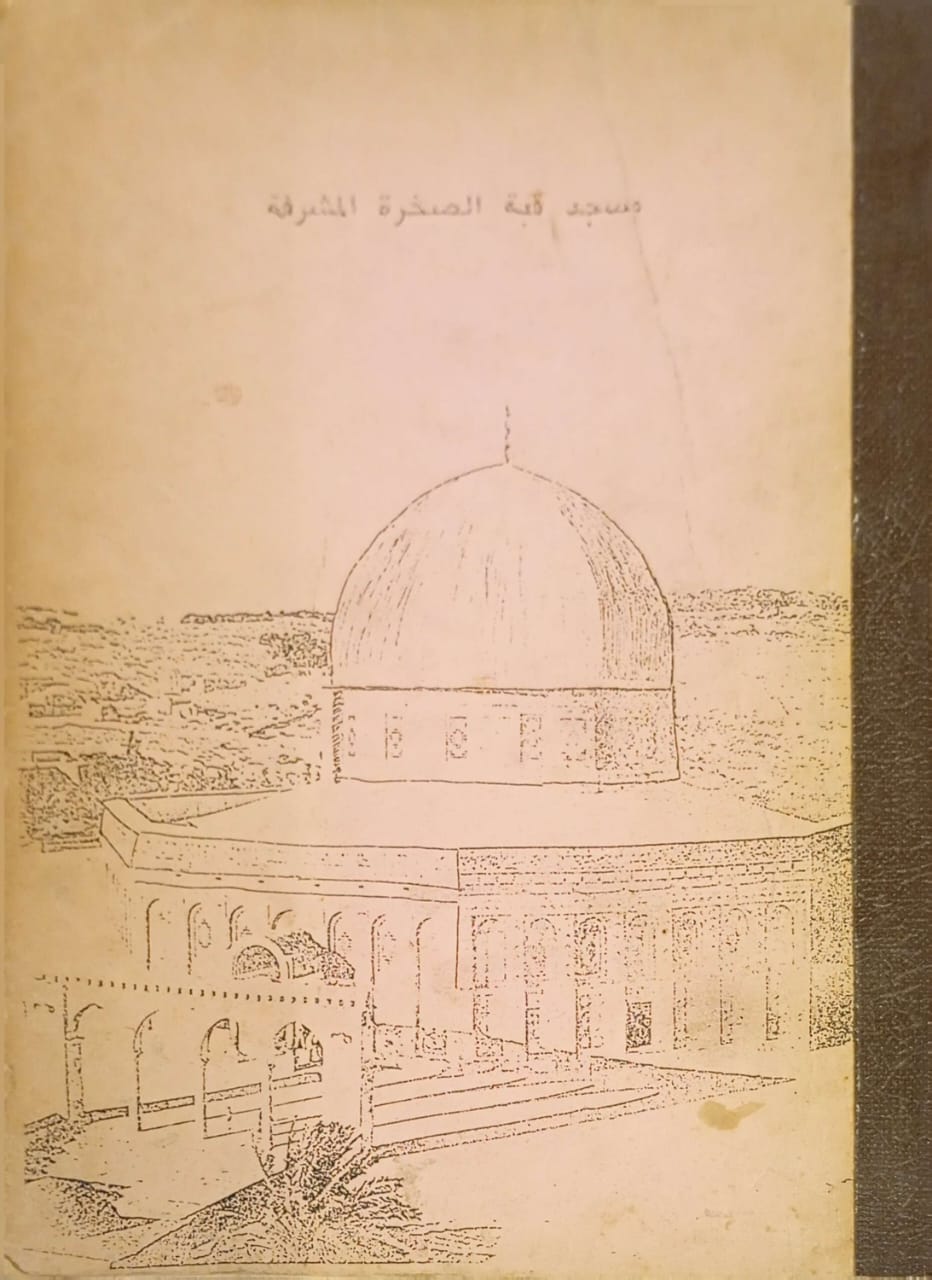 مسجد قبة الصخرة المشرفة